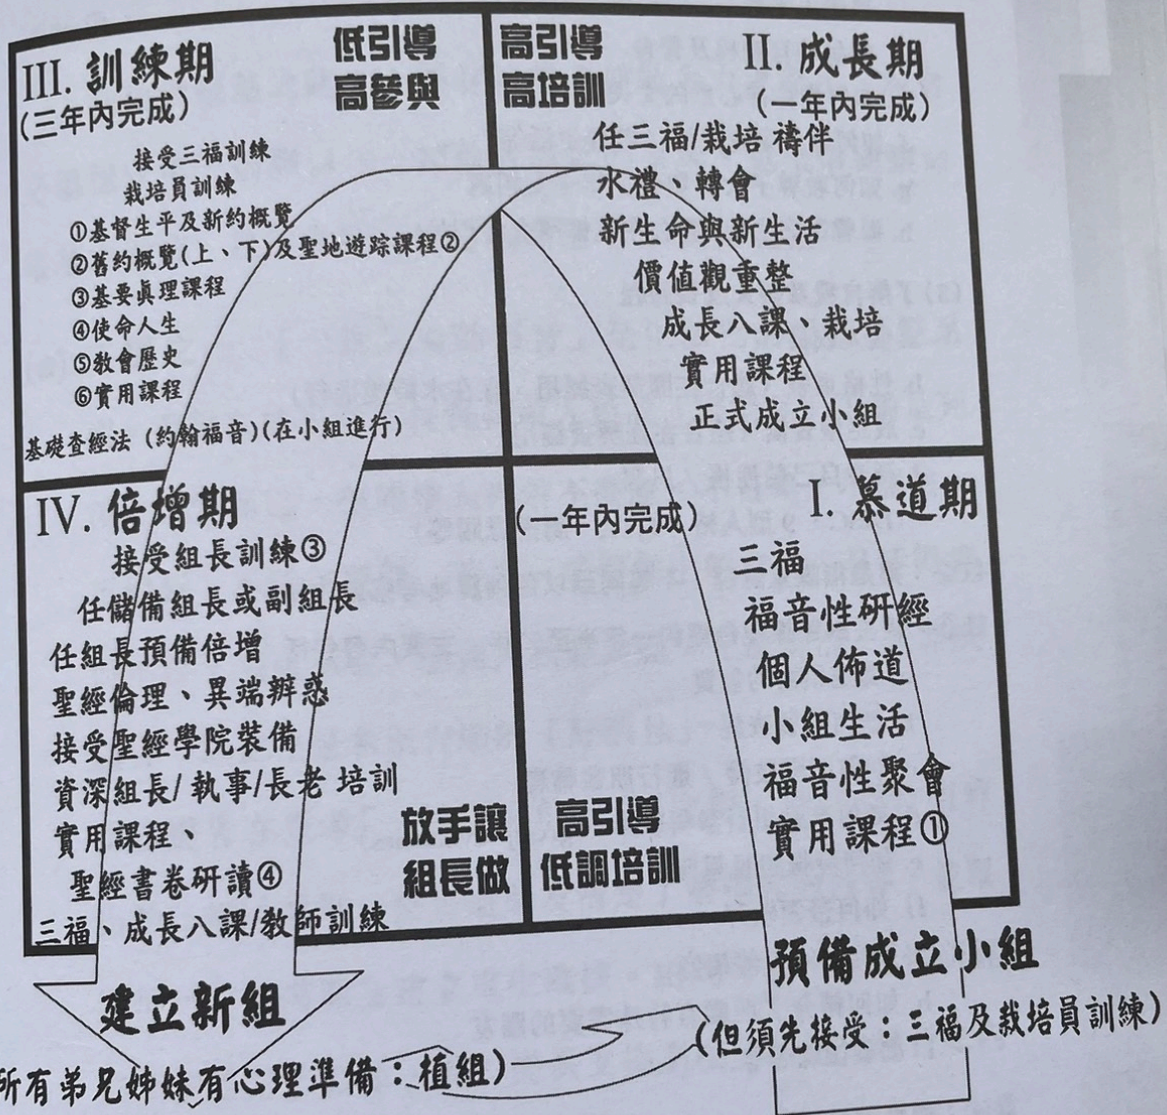 III. 訓練期
(三年內完成)
低引導
高參與
接受三福訓練
栽培員訓練
①基督生平及新約概覽
②舊約概覽(上、下)及聖地遊踪課程②
③基要真理課程
④使命人生
⑤教會歷史
⑥實用課程
基礎查經法 (約翰福音)(在小組進行)
高引導
高培訓
II. 成長期
(一年內完成)
任三福/栽培 禱伴
水禮、轉會
新生命與新生活
價值觀重整
成長八課、栽培
實用課程
正式成立小組
IV. 倍增期
接受組長訓練③
任儲備組長或副組長
任組長預備倍增
聖經倫理、異端辨惑
接受聖經學院裝備
資深組長/ 執事/長老 培訓
實用課程、
聖經書卷研讀④
三福、成長八課/教師訓練
放手讓
組長做
I. 慕道期
(一年內完成)
三福
福音性研經
個人佈道
小組生活
福音性聚會
實用課程①
高引導
低調培訓
建立新組
所有弟兄姊妹有心理準備：植組)
預備成立小組
(但須先接受：三福及栽培員訓練)